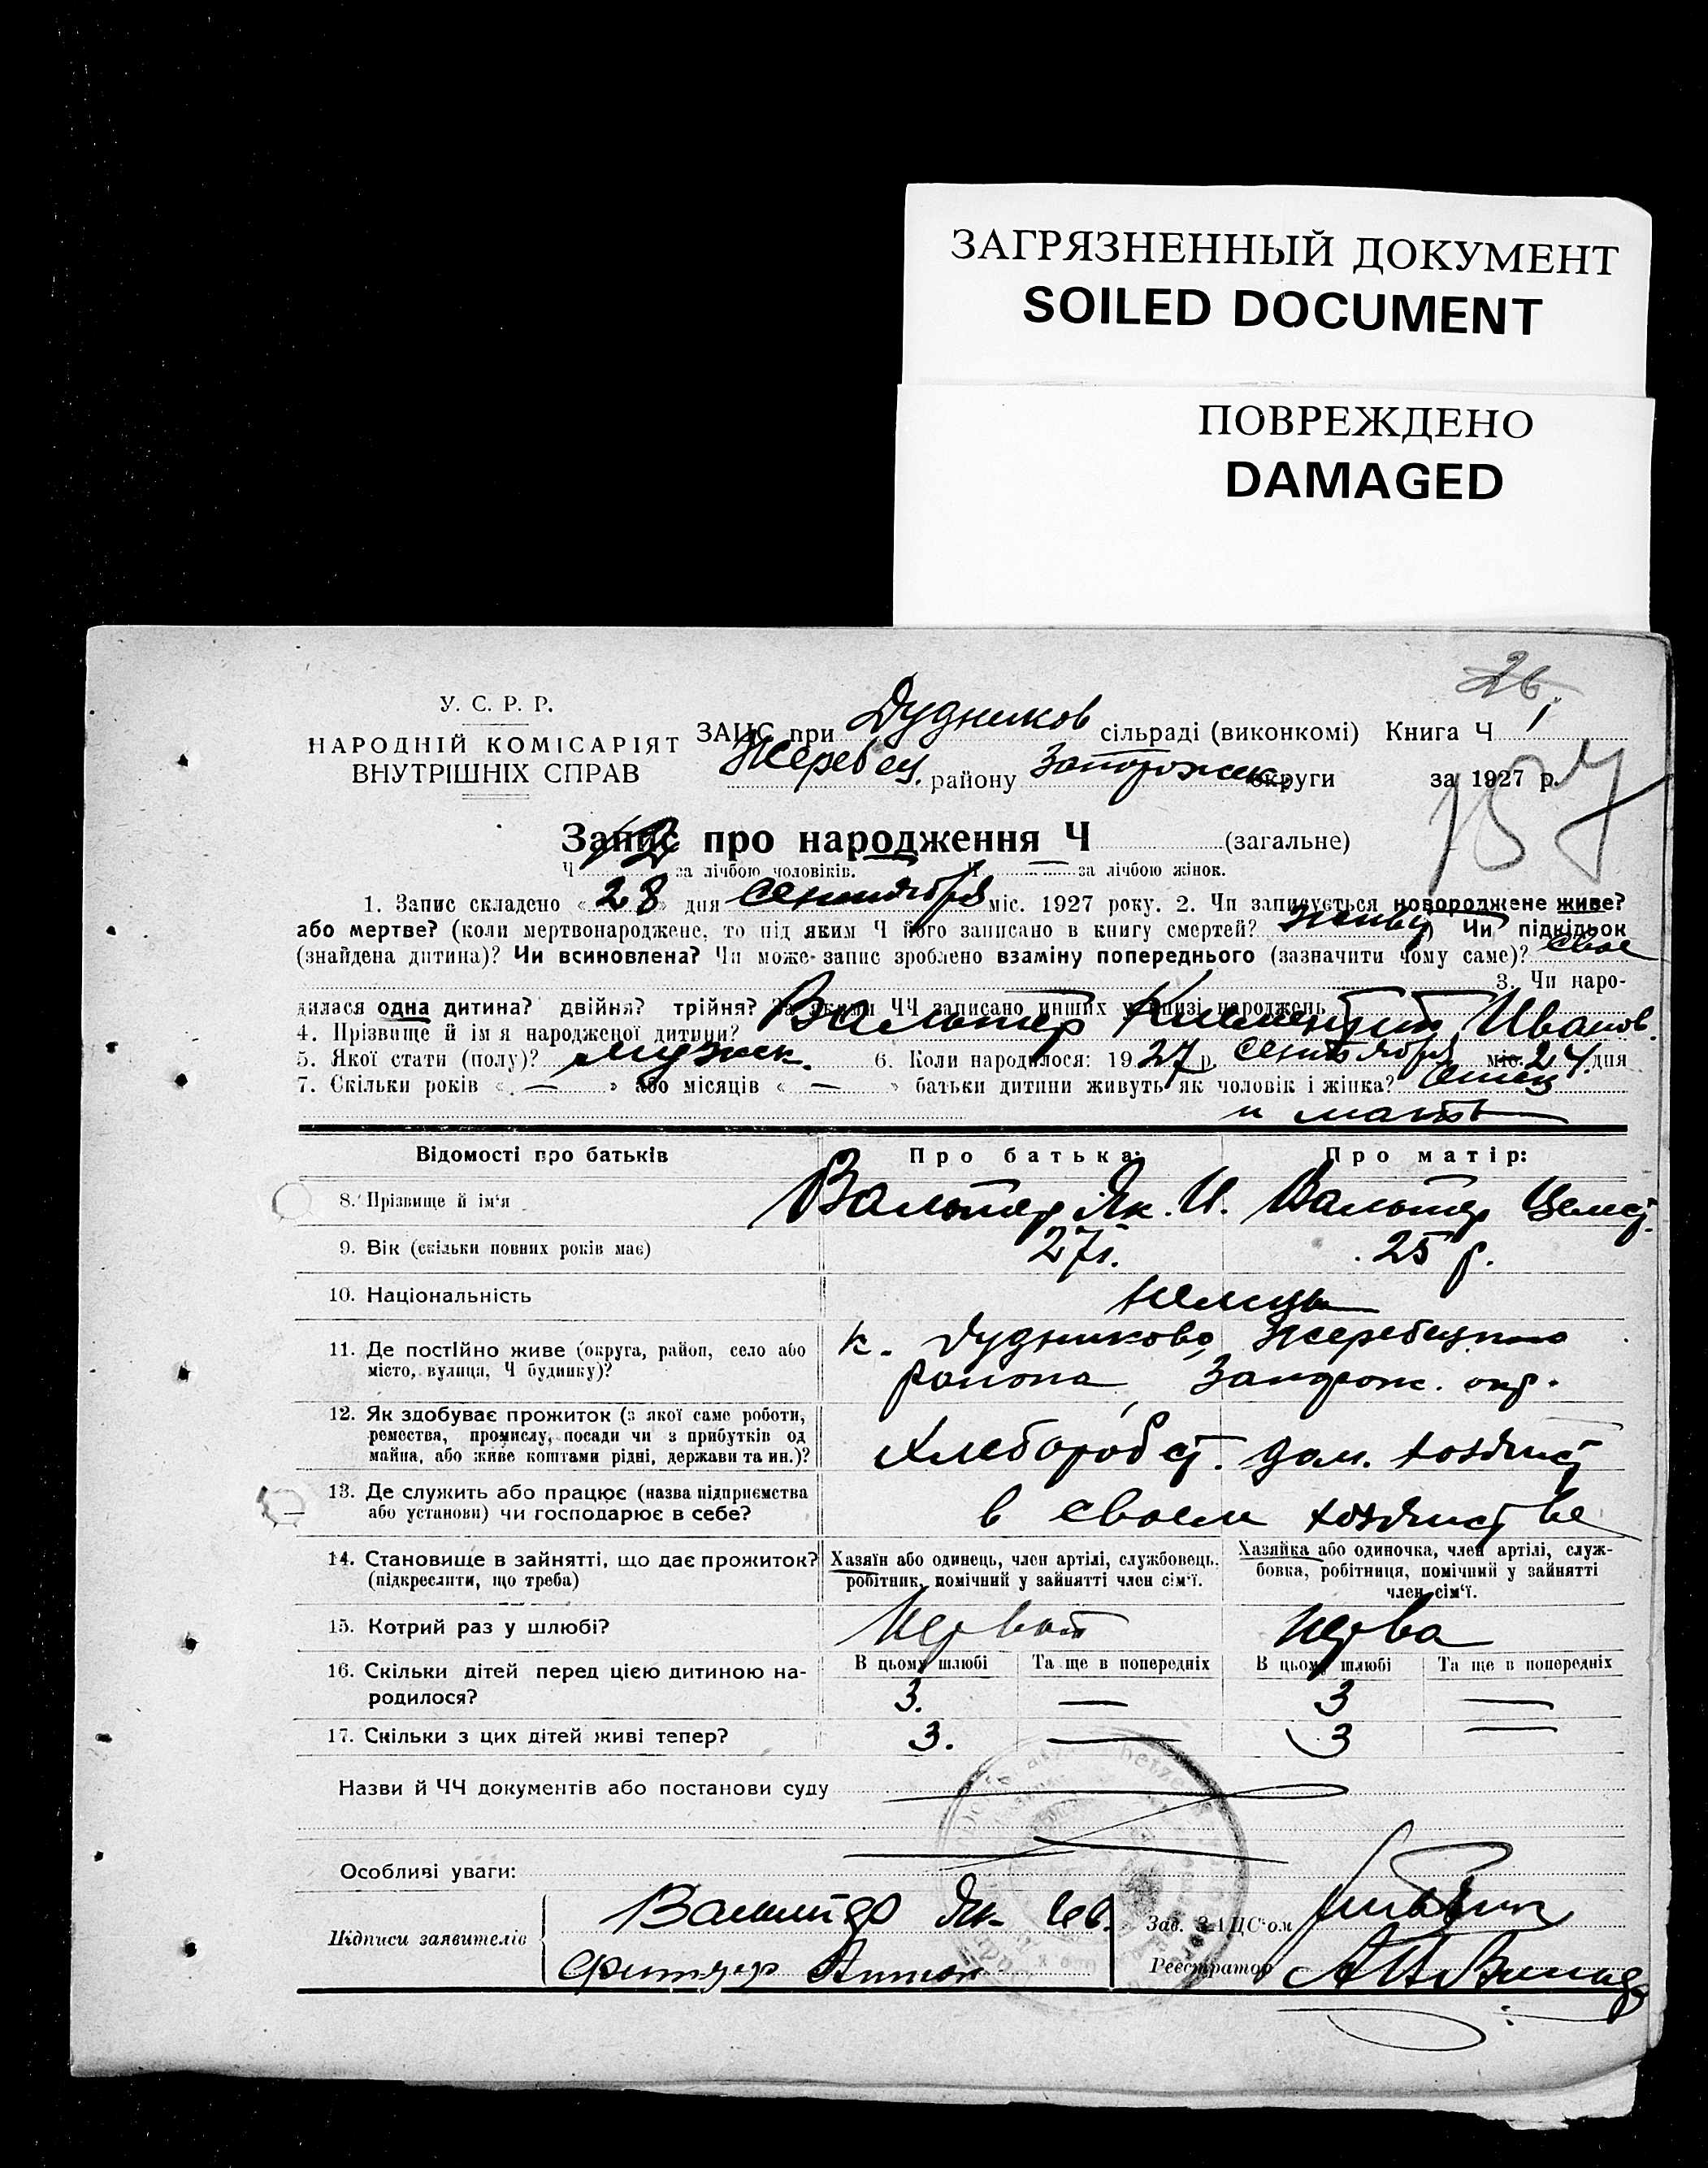 ЗАГРЯЗНЕННЫЙ ДОКУМЕНТ
SOILED DOCUMENT
ПОВРЕЖДЕНО
DAMAGED
26
У. С. Р. Р.
НАРОДНІЙ КОМІСАРІЯТ
ВНУТРІШНІХ СПРАВ
ЗАЦС при Дудников сільраді (виконкомі) Книга Ч
Жеребец. району Запорожск. округи за 1927 р.
157
Запис про народження Ч (загальне)
Ч 12 за лічбою чоловіків. Ч — за лічбою жінок.
1. Запис складено « 28 » дня Сентября міс. 1927 року. 2. Чи записується новороджене живе?
або мертве? (коли мертвонароджене, то під яким Ч його записано в книгу смертей? ) Чи підкідьок
(знайдена дитина)? Чи всиновлена? Чи може запис зроблено взаміну попереднього (зазначити чому саме)?
3. Чи наро-
дилася одна дитина? двійня? трійня? За якими ЧЧ записано инших у книзі народжень
4. Прізвище й ім'я народженої дитини? Вальтер Климентий Иванов.
5. Якої стати (полу)? мужск. 6. Коли народилося: 1927 р. Сентября міс. 24 дня
7. Скільки років « — » або місяців « — » батьки дитини живуть як чоловік і жінка? Отец
и мать
Відомості про батьків Про батька: Про матір:
8. Прізвище й ім'я Вальтер Як. И. Вальтер
9. Вік (скільки повних років має) 27 г. 25 р.
10. Національність немцы
11. Де постійно живе (округа, район, село або
місто, вулиця, Ч будинку)?
к. Дудниково, Жеребецкого
района, Запорож. окр.
12. Як здобуває прожиток (з якої саме роботи,
ремества, промислу, посади чи з прибутків од
майна, або живе коштами рідні, держави та ин.)?
Хлебороб ст. дом. хозяйст
13. Де служить або працює (назва підприємства
або установи) чи господарює в себе?
в своем хозяйстве
14. Становище в зайнятті, що дає прожиток?
(підкреслити, що треба)
Хазяїн або одинець, член артілі, службовець,
робітник, помічний у зайнятті член сім'ї.
Хазяйка або одиночка, член артілі, служ-
бовка, робітниця, помічний у зайнятті
член сім'ї.
15. Котрий раз у шлюбі? Первый Перва
16. Скільки дітей перед цією дитиною на-
родилося?
В цьому шлюбі Та ще в попередніх В цьому шлюбі Та ще в попередніх
3. — 3 —
17. Скільки з цих дітей живі тепер? 3. — 3 —
Назви й ЧЧ документів або постанови суду
Особливі уваги:
Підписи заявителів
Вальтер Як.
Антон
Зав. ЗАЦС'ом
Реєстратор